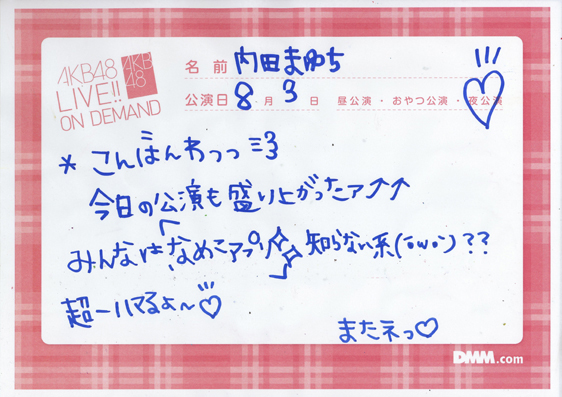 AKB48
LIVE!!
ON DEMAND
AKB
48
名前 内田まゆち
公演日 8月3日 昼公演・おやつ公演・夜公演
* こんばんわっっ
今日の公演も盛り上がったァ↑↑
みんなはなめこアプリ知らない系(・ω・)??
超ーハマるょ〜♡
またネっ♡
DMM.com